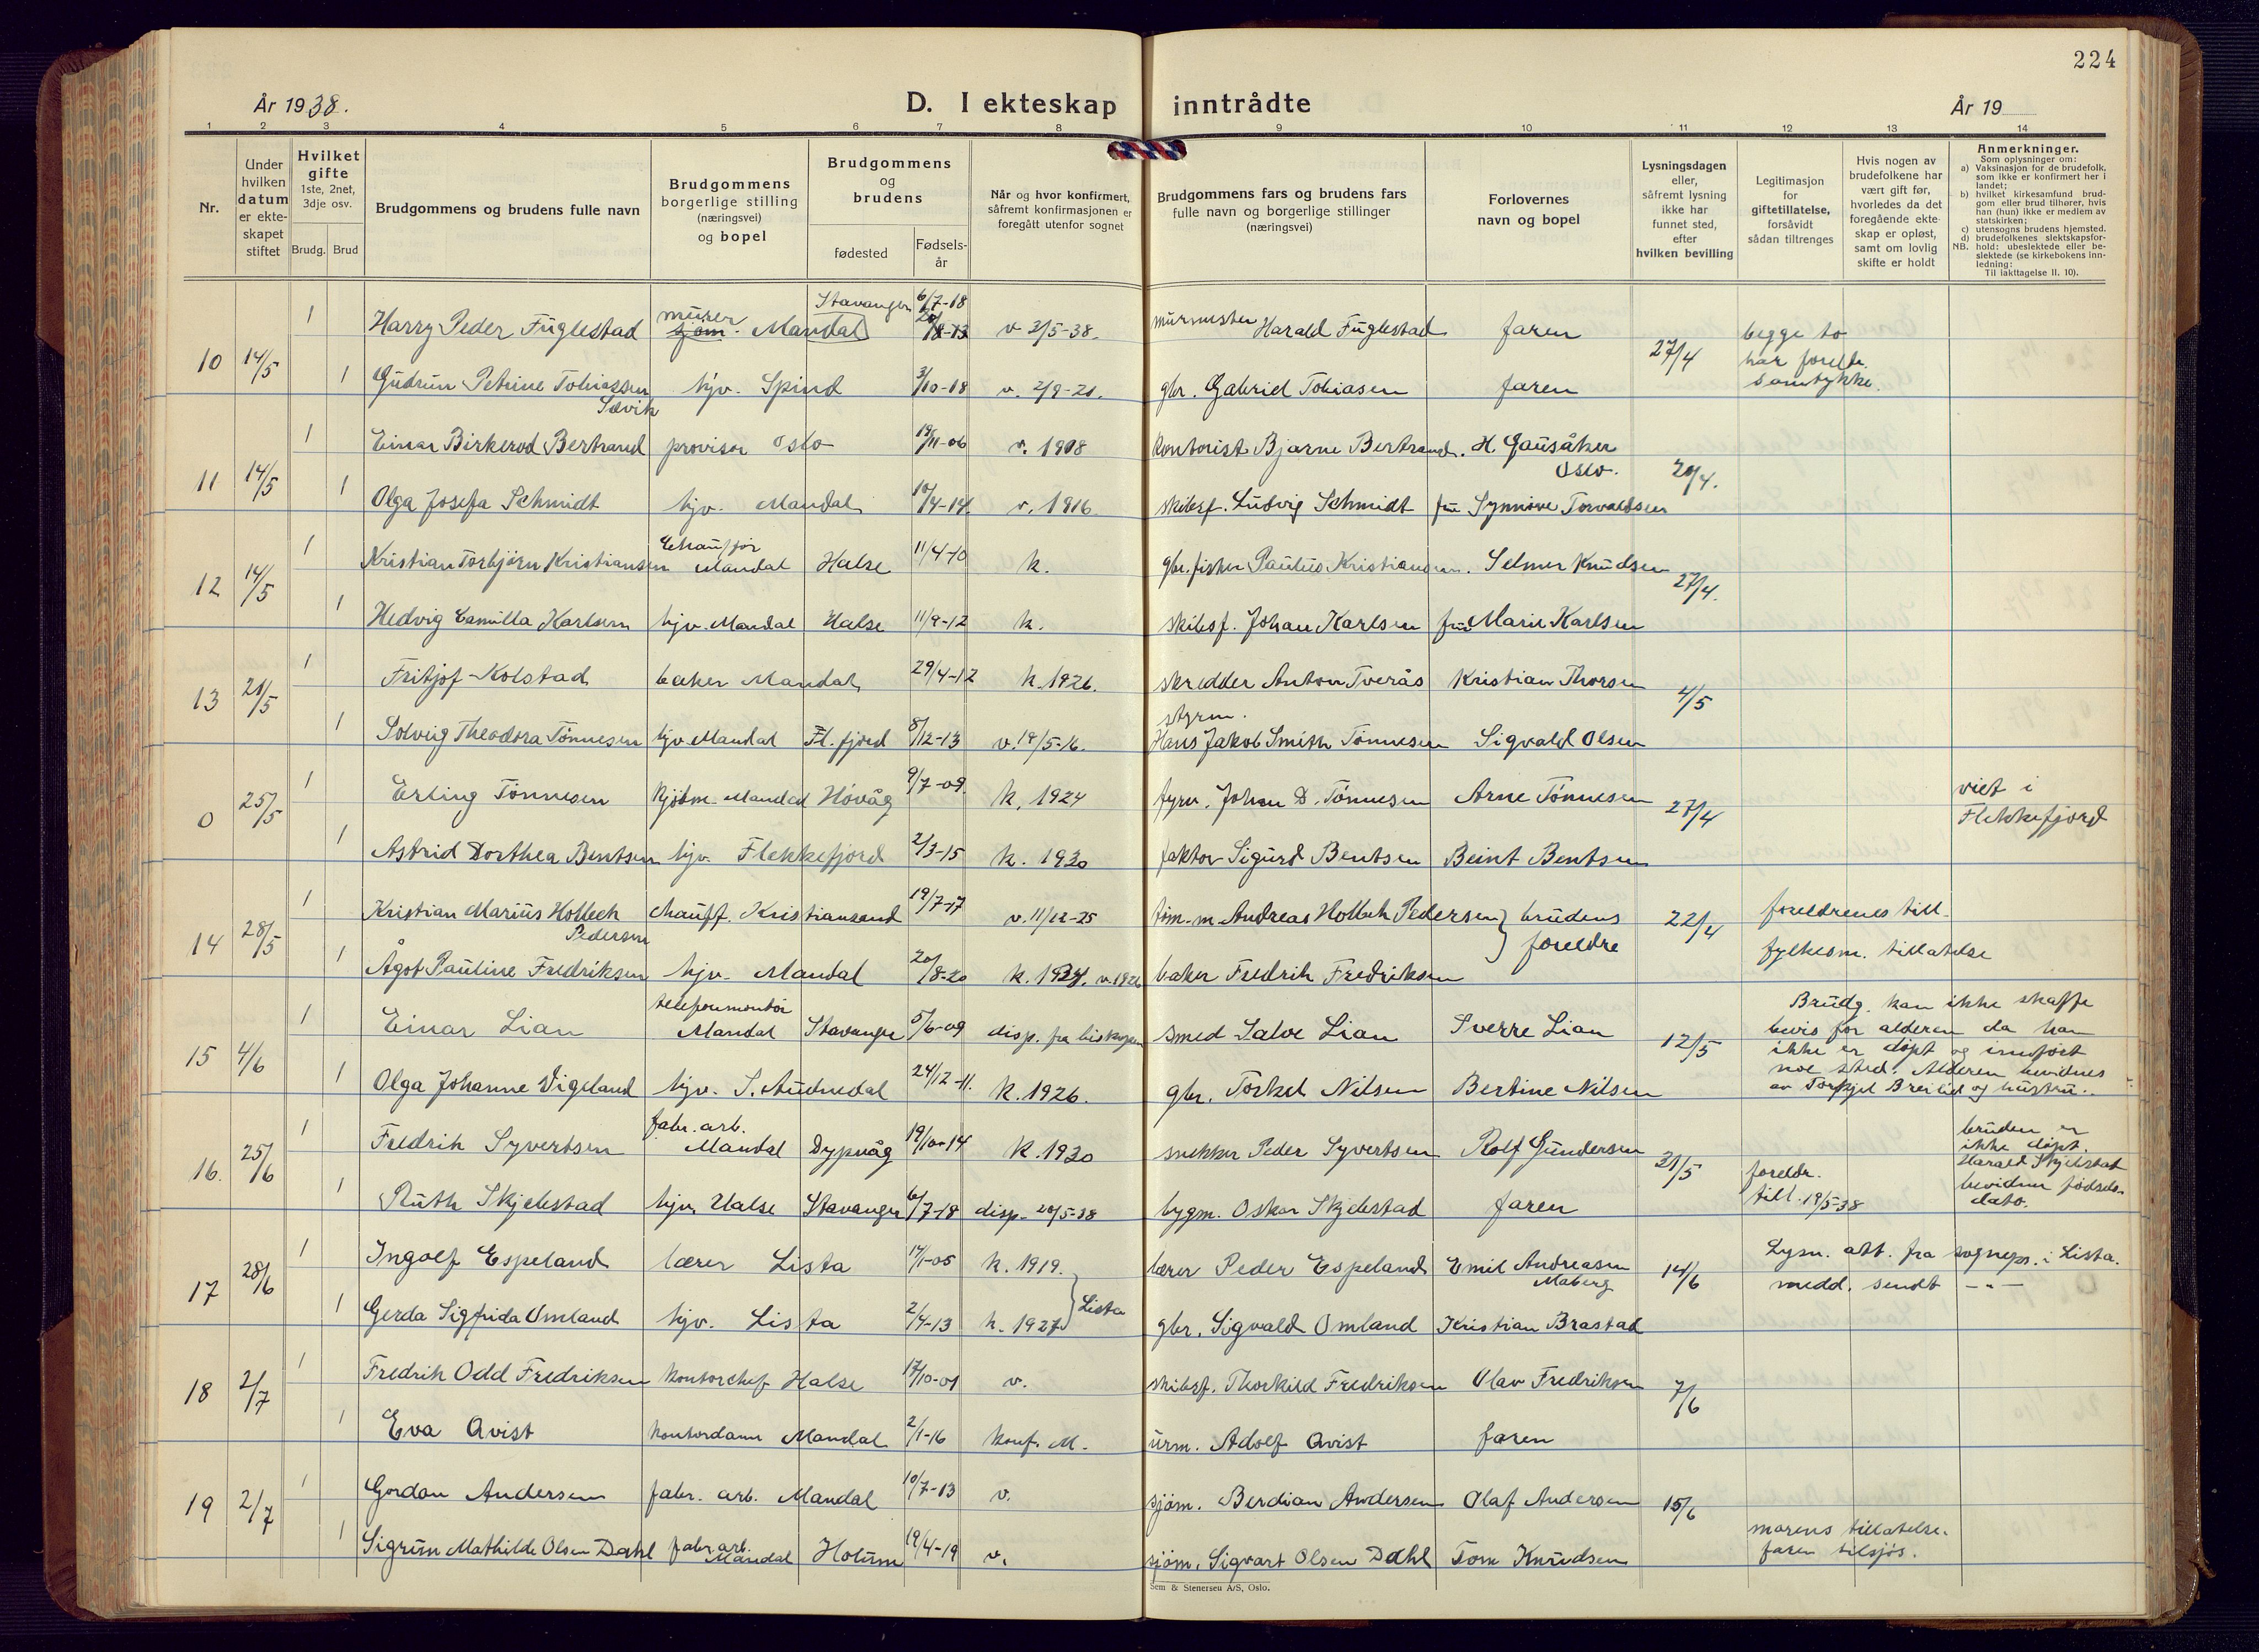 224
År 1938.
D. I ekteskap inntrådte
År 19
1 2 3 4 5 6 7 8 9 10 11 12 13 14
Nr.
Under hvilken datum er ekteskapet stiftet
Hvilket gifte 1ste, 2net, 3dje osv.
Brudg. Brud
Brudgommens og brudens fulle navn
Brudgommens borgerlige stilling (næringsvei) og bopel
Brudgommens og brudens
fødested
Fødsels-år
Når og hvor konfirmert, såfremt konfirmasjonen er foregått utenfor sognet
Brudgommens fars og brudens fars fulle navn og borgerlige stillinger (næringsvei)
Forlovernes navn og bopel
Lysningsdagen eller, såfremt lysning ikke har funnet sted, efter hvilken bevilling
Legitimasjon for giftetillatelse, forsåvidt sådan tiltrenges
Hvis nogen av brudefolkene har vært gift før, hvorledes da det foregående ekteskap er opløst, samt om lovlig skifte er holdt
Anmerkninger.
Som oplysninger om:
a) Vaksinasjon for de brudefolk, som ikke er konfirmert her i landet;
b) hvilket kirkesamfund brudgom eller brud tilhører, hvis han (hun) ikke er medlem av statskirken;
c) utensogns brudens hjemsted.
d) brudefolkenes slektskapsforhold: ubeslektede eller beslektede (se kirkebokens innledning:
NB. Til iakttagelse II. 10).
10 14/5 1 Harry Peder Fuglestad murer sjøm. Mandal Stavanger 6/7-18 v 2/5-38. murmester Harald Fuglestad faren 27/4 begge to har foreldr. samtykke.
1 Gudrun Petrine Tobiassen Sævik hjv. Spind 3/10-18 v. 2/9-21. gbr. Gabriel Tobiasen faren
11 14/5 1 Einar Birkerod Bertrand provisor Oslo 19/11-06 v. 1908 kontorist Bjarne Bertrand. H. Gausåker Oslo. 29/4.
1 Olga Josefa Schmidt hjv. Mandal 10/4-14 v. 1916 skibsf. Ludvig Schmidt fru Synnive Torvaldsen
12 14/5 1 Kristian Torbjørn Kristiansen Chauffør Mandal Halse 11/4-10 k. gbr. fisker Paulus Kristiansen. Selmer Knudsen 27/4.
1 Hedvig Camilla Karlsen hjv. Mandal Halse 11/9-12 k. skibsf. Johan Karlsen fru Marie Karlsen
13 21/5 1 Fritjof Kolstad baker Mandal 29/4-12 k. 1926. skredder Anton Tverås Kristian Thorsen 4/5
1 Solveig Theodora Tønnesen hjv. Mandal Fl. fjord 8/12-13 v. 18/5-16. styrm. Hans Jakob Smith Tønnesen Sigvald Olsen
0 25/5 1 Erling Tønnesen kjøbm. Mandal Høvåg 9/7-09. k. 1924 fyrv. Johan D. Tønnesen Arne Tønnesen 27/4 viet i Flekkefjord
1 Astrid Dorthea Bentsen hjv. Flekkefjord 2/3-15 k. 1930 faktor Sigurd Bentsen Beint Bentsen
14 28/5 1 Kristian Marius Holbek Pedersen chauff. Kristiansand 19/7-17 v. 11/12-25 tøm.m. Andreas Holbek Pedersen } brudens foreldre 22/4 foreldrenes till. fylkesm. tillatelse
1 Ågot Pauline Fredriksen hjv. Mandal 20/8-20 k. 1934. v. 1926 baker Fredrik Fredriksen
15 4/6 1 Einar Lian telefonmontør Mandal Stavanger 5/6-09 disp. fra biskopen smed Salve Lian Sverre Lian 12/5 Brudg. kan ikke skaffe bevis for alderen da han ikke er døpt og innført noe sted. Alderen bevidnes av Torkjel Breilid og hustru.
1 Olga Johanne Vigeland hjv. S. Audnedal 24/12-11. k. 1926. gbr. Torkel Nilsen Bertine Nilsen
16. 25/6 1 Fredrik Syvertsen fabr. arb. Mandal Dypvåg 19/10-14 k. 1930 snekker Peder Syvertsen Rolf Gundersen 21/5 foreldr. till. 19/5-38 bruden er ikke døpt. Harald Skjelstad bevidner fødselsdato.
1 Ruth Skjelestad hjv. Halse Stavanger 6/7-18 disp. 20/5-38 bygm. Oskar Skjelestad faren
17 28/6 1 Ingolf Espeland lærer Lista 17/1-05 k. 1919. } Lista lærer Peder Espeland Emil Andreasen Maberg 14/6 Lysn. att. fra sognepr. i Lista. medd. sendt -"-
1 Gerda Sigfrida Omland hjv. Lista 2/4-13 k. 1927 gbr. Sigvald Omland Kristian Brastad
18 2/7 1 Fredrik Odd Fredriksen kontorchef Halse 17/10-01 v. skibsf. Thorkild Fredriksen Olav Fredriksen 7/6
1 Eva Qvist kontordame Mandal 2/1-16 konf. M. urm. Adolf Qvist faren
19 2/7 1 Gordon Andersen fabr. arb. Mandal 10/7-13 v. sjøm. Berdian Andersen Olaf Andersen 15/6 morens tillatelse. faren tilsjøs.
1 Sigrun Mathilde Olsen Dahl fabr. arb. Mandal Holum 19/4-19 v. sjøm. Sigvart Olsen Dahl Tom Knudsen
Sem & Stenersen A/S, Oslo.